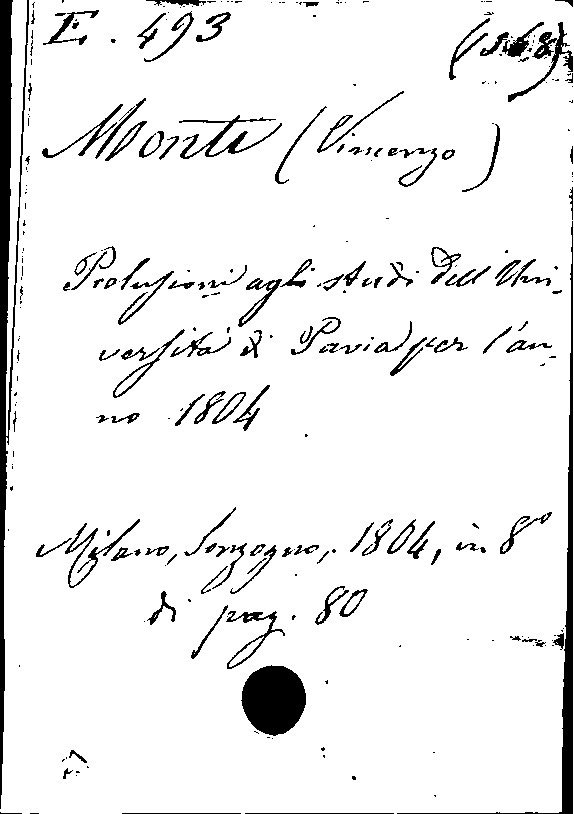 E. 493
Monti (Vincenzo)
Prolusioni agli studi dell' Uni-
versità di Pavia per l'an-
no 1804
Milano, Sonzogno, 1804, in 8°
di pag. 80